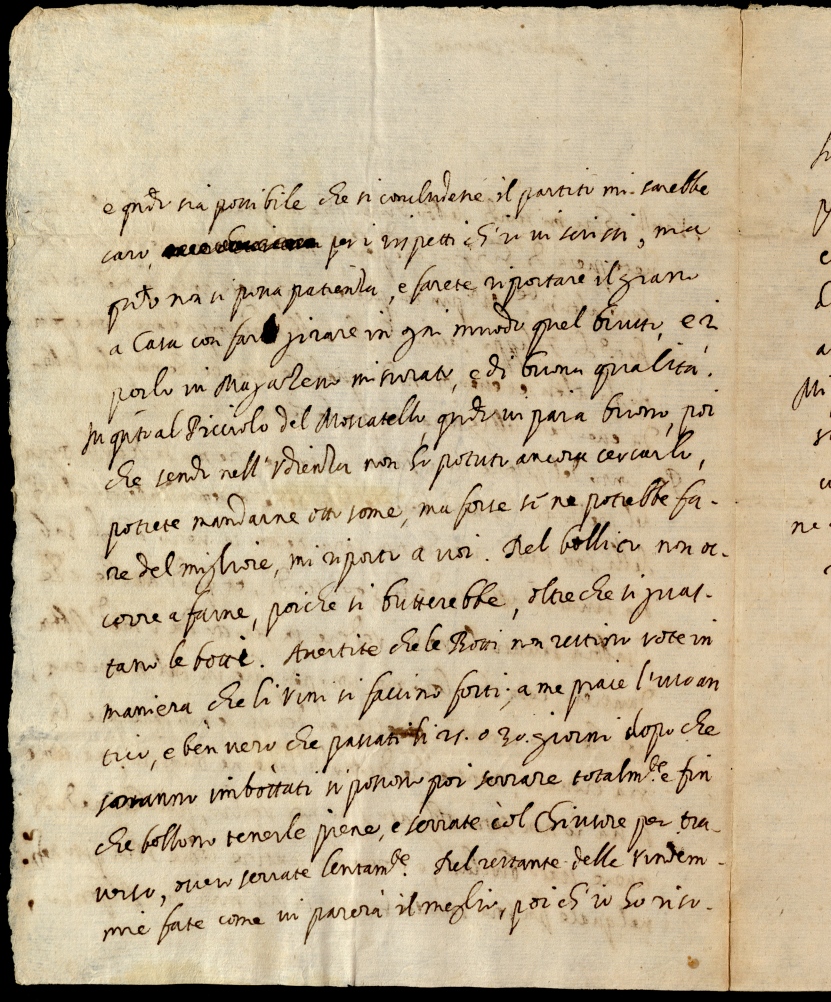 e qndo sia possibile che si concludesse il partito mi sarebbe
caro, per i rispetti ch'io vi scrissi, ma
qndo non si possa patienza, e farete riportare il grano
a Casa con farlo girare in ogni modo quel brutto, e ri
porlo in Magazeno misurato, e di buona qualità.
In qnto al Picciolo del Moscatello, qndo vi paia buono, poi
che sendo nell'Vdienza non ho potuto ancora cercarlo,
potrete mandarne otto some, ma forse se ne potrebbe fa-
re del migliore, mi riporto a voi. Del bollito non oc-
corre a farne, poiche si butterebbe, oltre che si guas-
tano le botti. Avertite che le Botti non restino vote in
maniera che li Vini si faccino forti; a me piace l'uso an
tico, e ben vero che passati li 25. o 30. giorni dopo che
saranno imbottati si possono poi serrare totalmte e fin
che bollono tenerle piene, e serrate col Chiusore per tra-
verso, overo serrate lentamte. Del restante delle Vindem-
mie fate come vi parerà il meglio, poi ch'io ho riso-